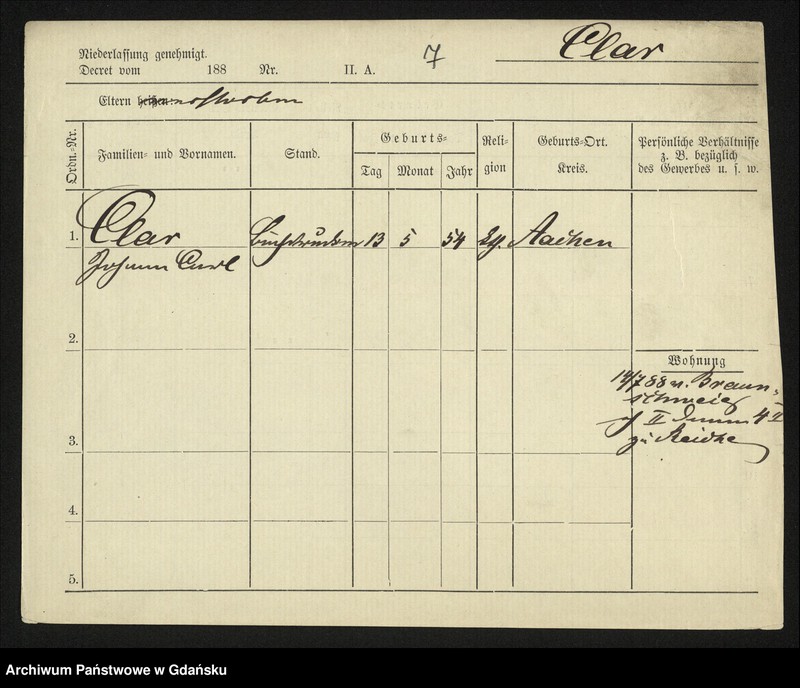 Niederlassung genehmigt.
Decret vom 188 Nr. II. A.
7
Clar
Eltern heißen: verstorben
Ordn.-Nr.
Familien- und Vornamen.
Stand.
Geburts-
Tag Monat Jahr
Reli-
gion
Geburts-Ort.
Kreis.
Persönliche Verhältnisse
z. B. bezüglich
des Gewerbes u. s. w.
1. Clar Buchdrucker 13 5 54 Aachen
Johann Carl
2.
Wohnung
14/7 88 v. Braun-
schweig
II Damm 4 II
zu Reidke
3.
4.
5.
Archiwum Państwowe w Gdańsku